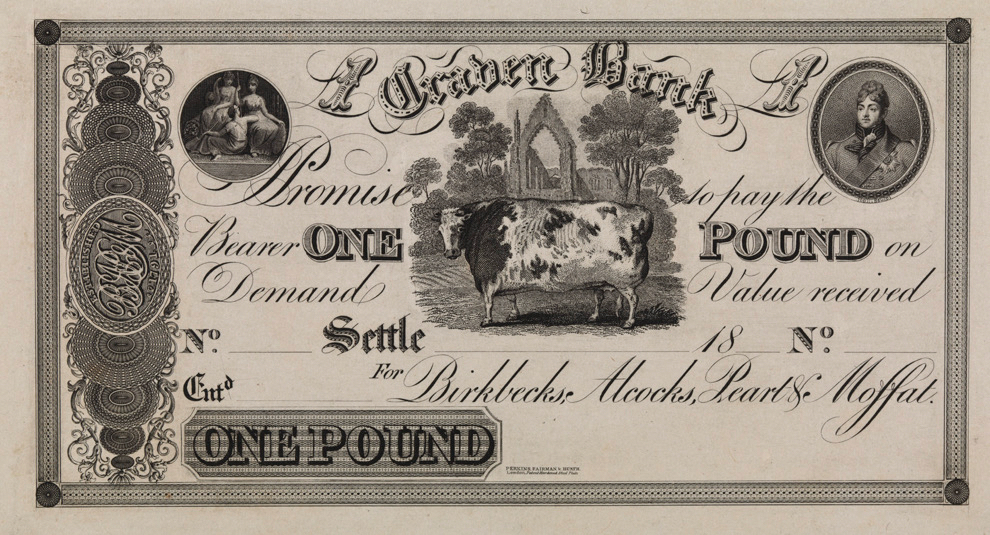 1 Craven Bank 1
I Promise to pay the
Bearer ONE POUND on
Demand Value received
No. Settle 18 No.
Entd For Birkbecks, Alcocks, Peart & Moffat.
ONE POUND
PERKINS, FAIRMAN & HEATH
London, Patent Hardened Steel Plate.